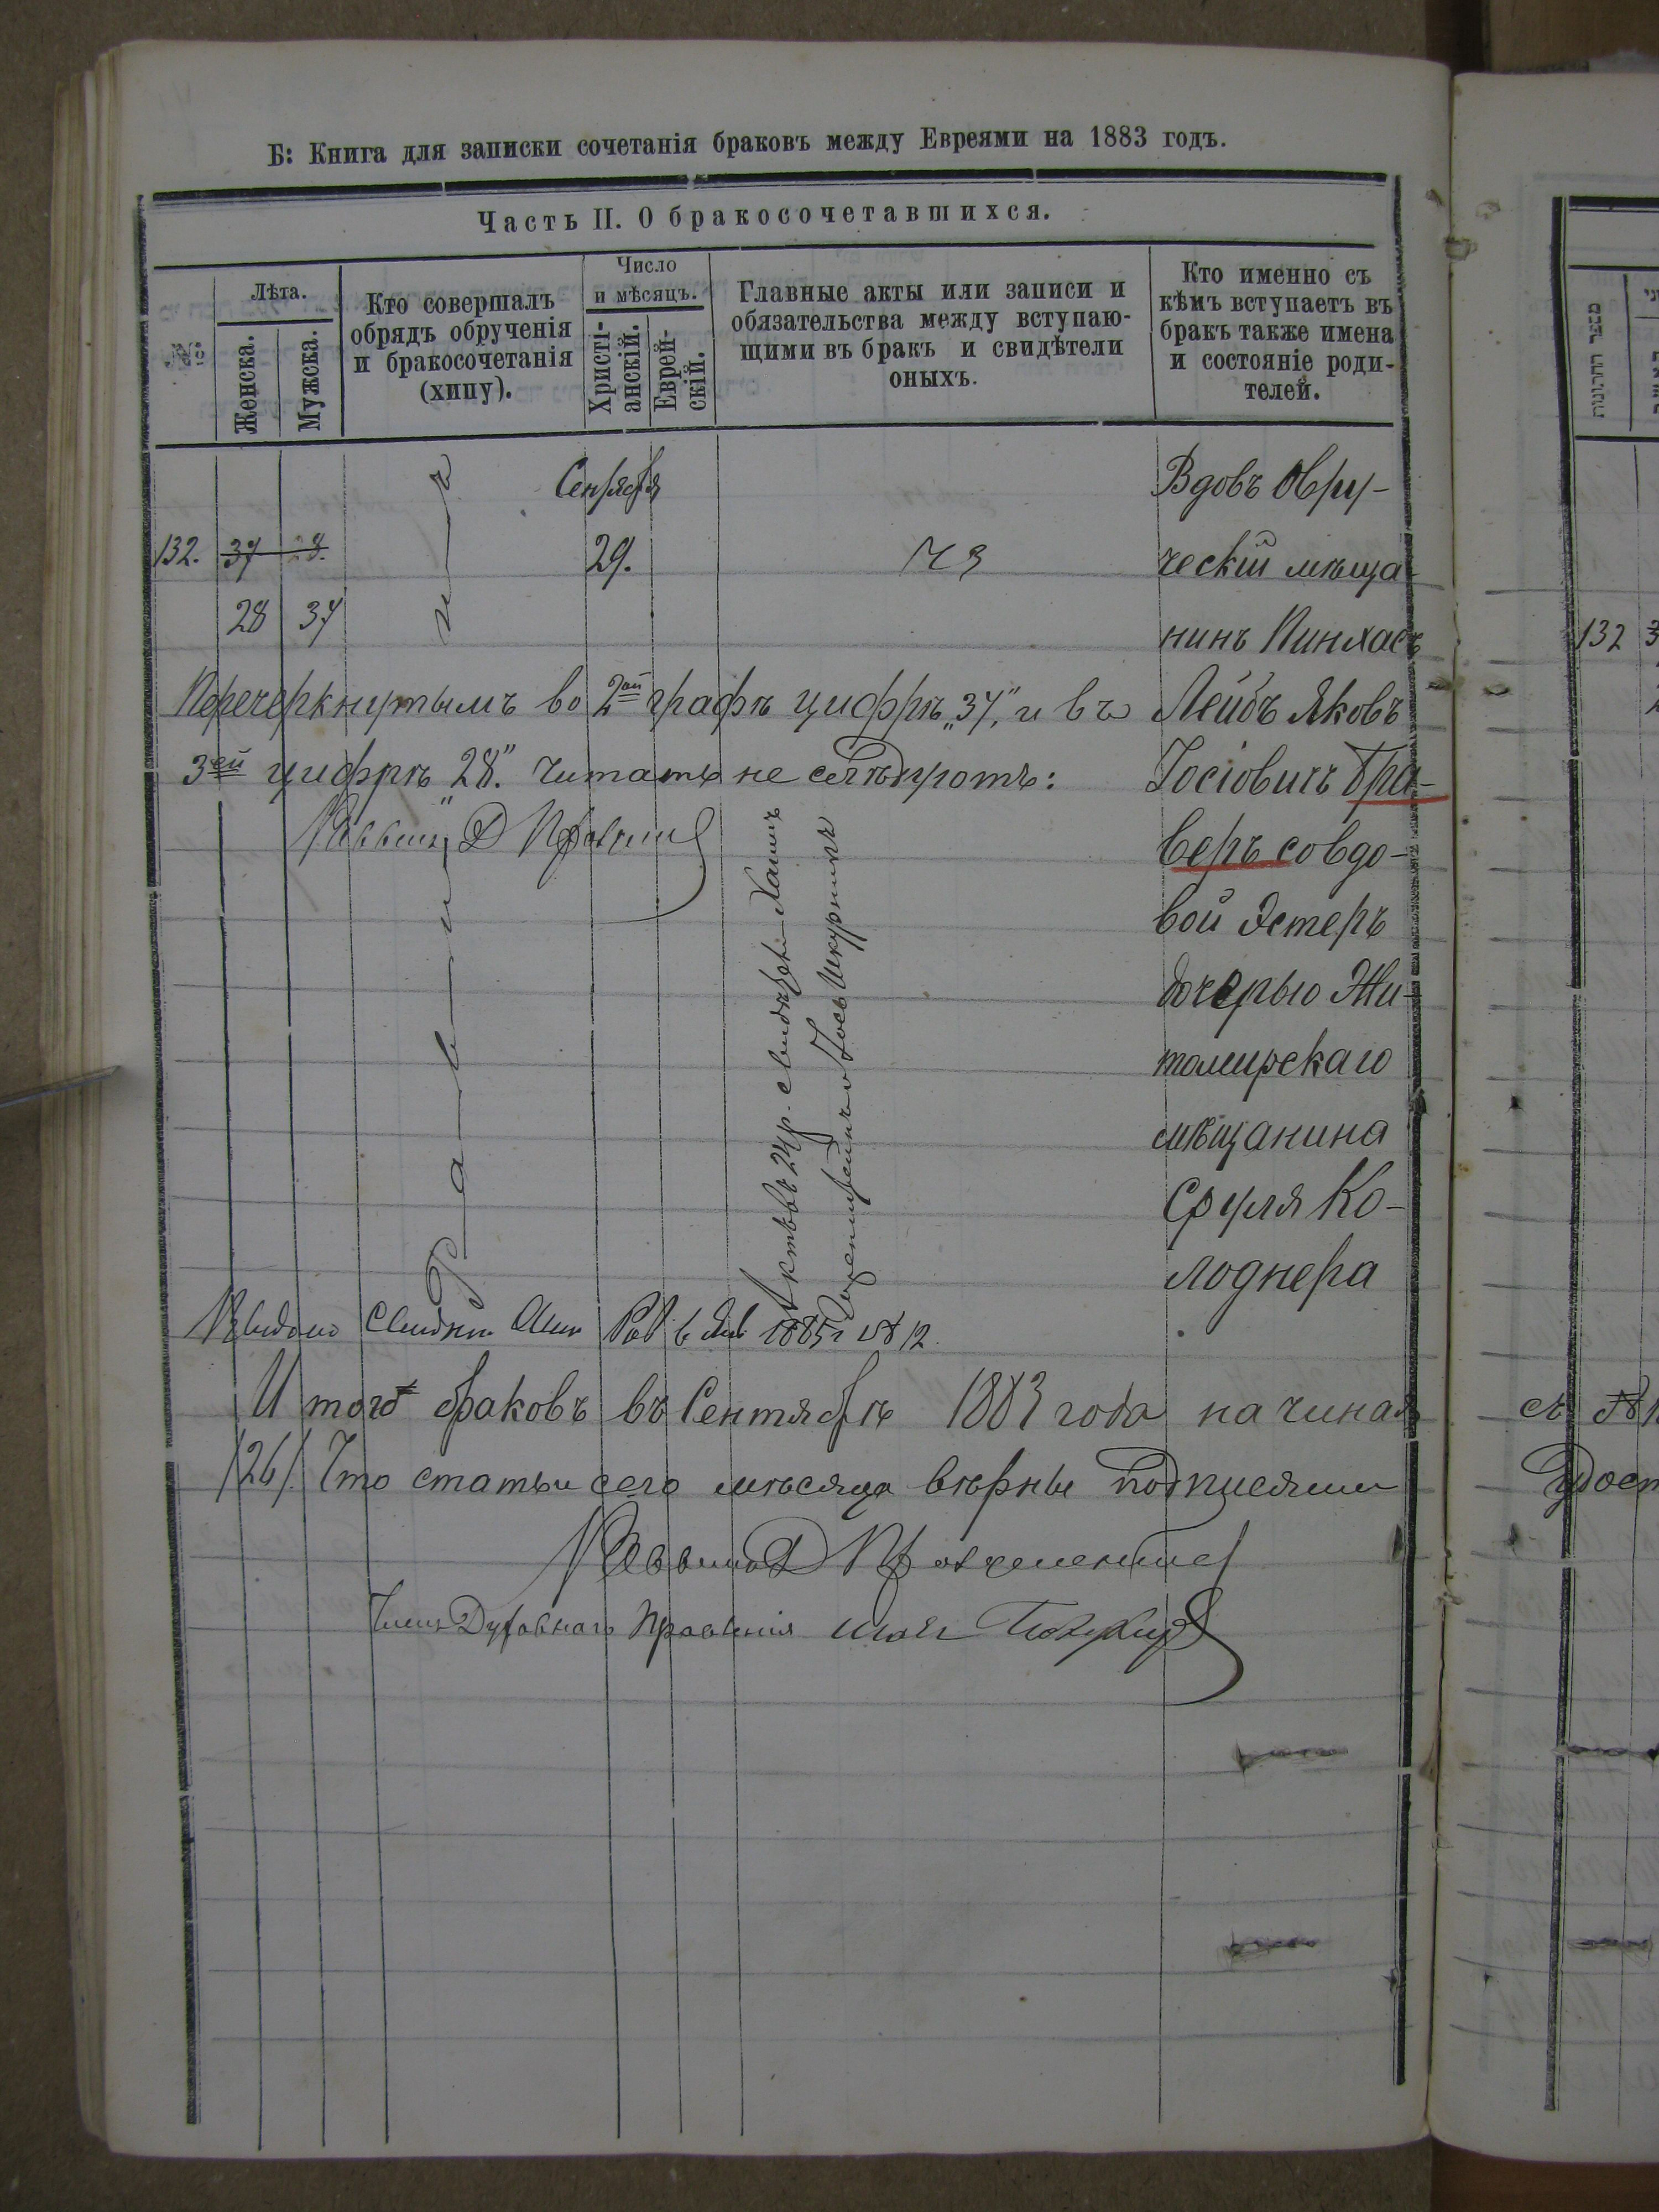 Б: Книга для записки сочетанія браковъ между Евреями на 1883 годъ.
Часть II. О бракосочетавшихся.
№
Лѣта.
Женска.
Мужска.
Кто совершалъ
обрядъ обрученія
и бракосочетанія
(хипу).
Число
и мѣсяцъ.
Христі-
анскій.
Еврей-
скій.
Главные акты или записи и
обязательства между вступаю-
щими въ бракъ и свидѣтели
оныхъ.
Кто именно съ
кѣмъ вступаетъ въ
бракъ также имена
и состояніе роди-
телей.
132.
37 28.
28 37
Сентября
29.
Вдовъ Овру-
ческій мѣща-
нинъ Пинхасъ
Лейбъ Яковъ
Іосіовичъ Бра-
веръ со вдо-
вой Эстеръ
дочерью Жи-
томирскаго
мѣщанина
Сруля Ко-
лоднера
Перечеркнутымъ во 2ой графѣ цифрѣ „37“, и въ
3ей цифрѣ „28“. Читать не слѣдуютъ:
Раввинъ
Актъ въ 24 р. свидѣтели Хаимъ
и Іось Шкурникъ
1885 г № 12
Итого браковъ въ Сентябрѣ 1883 года начиная
/26/. Что статьи сего мѣсяца вѣрны подписями
Раввинъ
Членъ Духовнаго Правленія
מספר החתונות
132
съ №